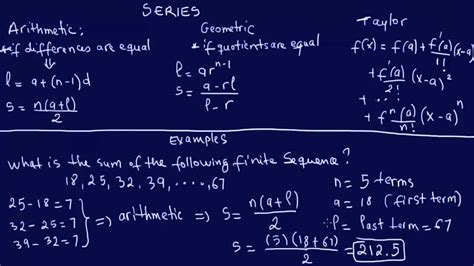 SERIES
Arithmetic:
*if differences are equal
⇓
l = a+(n-1)d
S = n(a+l)/2
Geometric
*if quotients are equal
l = ar^(n-1)
S = (a-rl)/(1-r)
Taylor
f(x) = f(a) + f'(a)/1! (x-a)
+ f''(a)/2! (x-a)^2
+ ...
+ f^n(a)/n! (x-a)^n
Examples
What is the sum of the following finite sequence?
18, 25, 32, 39, ...., 67
25-18 = 7
32-25 = 7
39-32 = 7
} => arithmetic => S = n(a+l)/2
S = (5)(18+67)/2 = 212.5
n = 5 terms
a = 18 (first term)
l = last term = 67